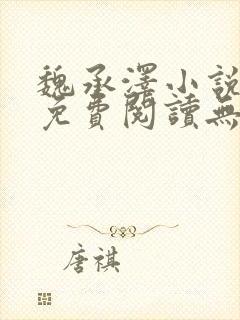 魏承澤小說
免費閱讀無
唐祺